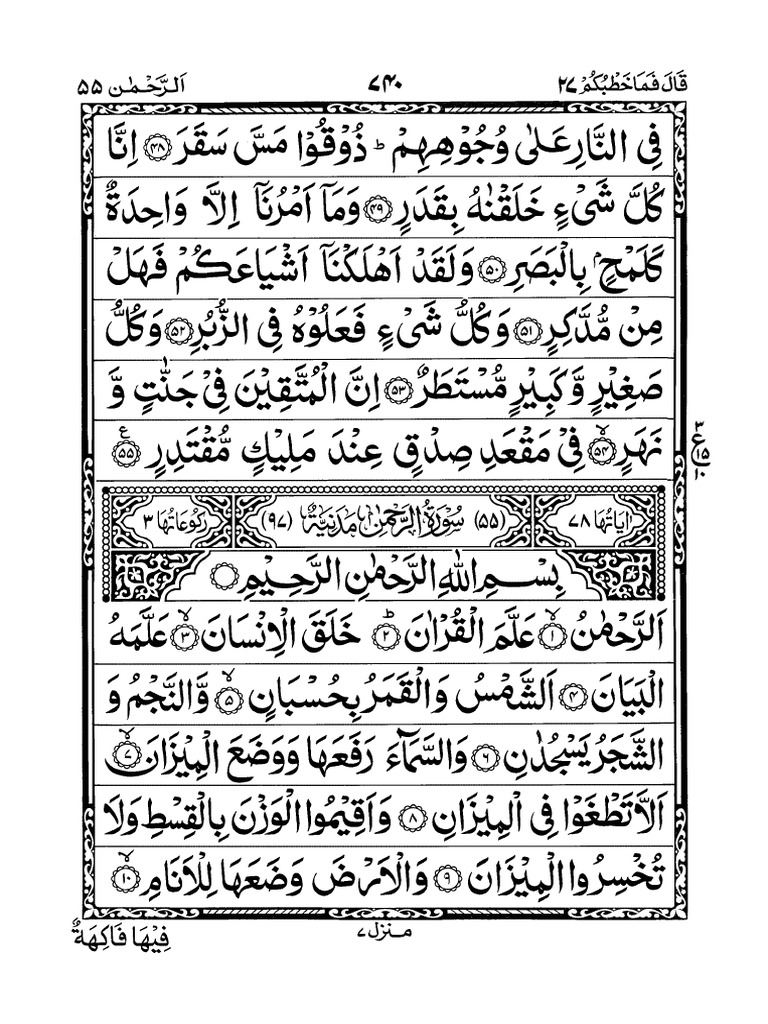 قَالَ فَمَا خَطْبُكُمْ ٢٧ ٧٤٠ اَلرَّحْمٰن ٥٥
فِي النَّارِ عَلٰى وُجُوْهِهِمْ ؕ ذُوْقُوْا مَسَّ سَقَرَ ﴿٤٨﴾ اِنَّا
كُلَّ شَيْءٍ خَلَقْنٰهُ بِقَدَرٍ ﴿٤٩﴾ وَمَاۤ اَمْرُنَاۤ اِلَّا وَاحِدَةٌ
كَلَمْحٍۭ بِالْبَصَرِ ﴿٥٠﴾ وَلَقَدْ اَهْلَكْنَاۤ اَشْيَاعَكُمْ فَهَلْ
مِنْ مُّدَّكِرٍ ﴿٥١﴾ وَكُلُّ شَيْءٍ فَعَلُوْهُ فِي الزُّبُرِ ﴿٥٢﴾ وَكُلُّ
صَغِيْرٍ وَّكَبِيْرٍ مُّسْتَطَرٌ ﴿٥٣﴾ اِنَّ الْمُتَّقِيْنَ فِيْ جَنّٰتٍ وَّ
نَهَرٍ ۙ﴿٥٤﴾ فِيْ مَقْعَدِ صِدْقٍ عِنْدَ مَلِيْكٍ مُّقْتَدِرٍ ﴿٥٥﴾ ع
٣ ع ١٥ ١٠
اٰيَاتُهَا ٧٨ (٥٥) سُوْرَةُ الرَّحْمٰنِ مَدَنِيَّةٌ (٩٧) رُكُوْعَاتُهَا ٣
بِسْمِ اللهِ الرَّحْمٰنِ الرَّحِيْمِ
اَلرَّحْمٰنُ ۙ﴿١﴾ عَلَّمَ الْقُرْاٰنَ ؕ﴿٢﴾ خَلَقَ الْاِنْسَانَ ۙ﴿٣﴾ عَلَّمَهُ
الْبَيَانَ ﴿٤﴾ اَلشَّمْسُ وَالْقَمَرُ بِحُسْبَانٍ ۙ﴿٥﴾ وَّالنَّجْمُ وَ
الشَّجَرُ يَسْجُدٰنِ ﴿٦﴾ وَالسَّمَآءَ رَفَعَهَا وَوَضَعَ الْمِيْزَانَ ۙ﴿٧﴾
اَلَّا تَطْغَوْا فِي الْمِيْزَانِ ﴿٨﴾ وَاَقِيْمُوا الْوَزْنَ بِالْقِسْطِ وَلَا
تُخْسِرُوا الْمِيْزَانَ ﴿٩﴾ وَالْاَرْضَ وَضَعَهَا لِلْاَنَامِ ۙ﴿١٠﴾
منزل ٧
فِيْهَا فَاكِهَةٌ